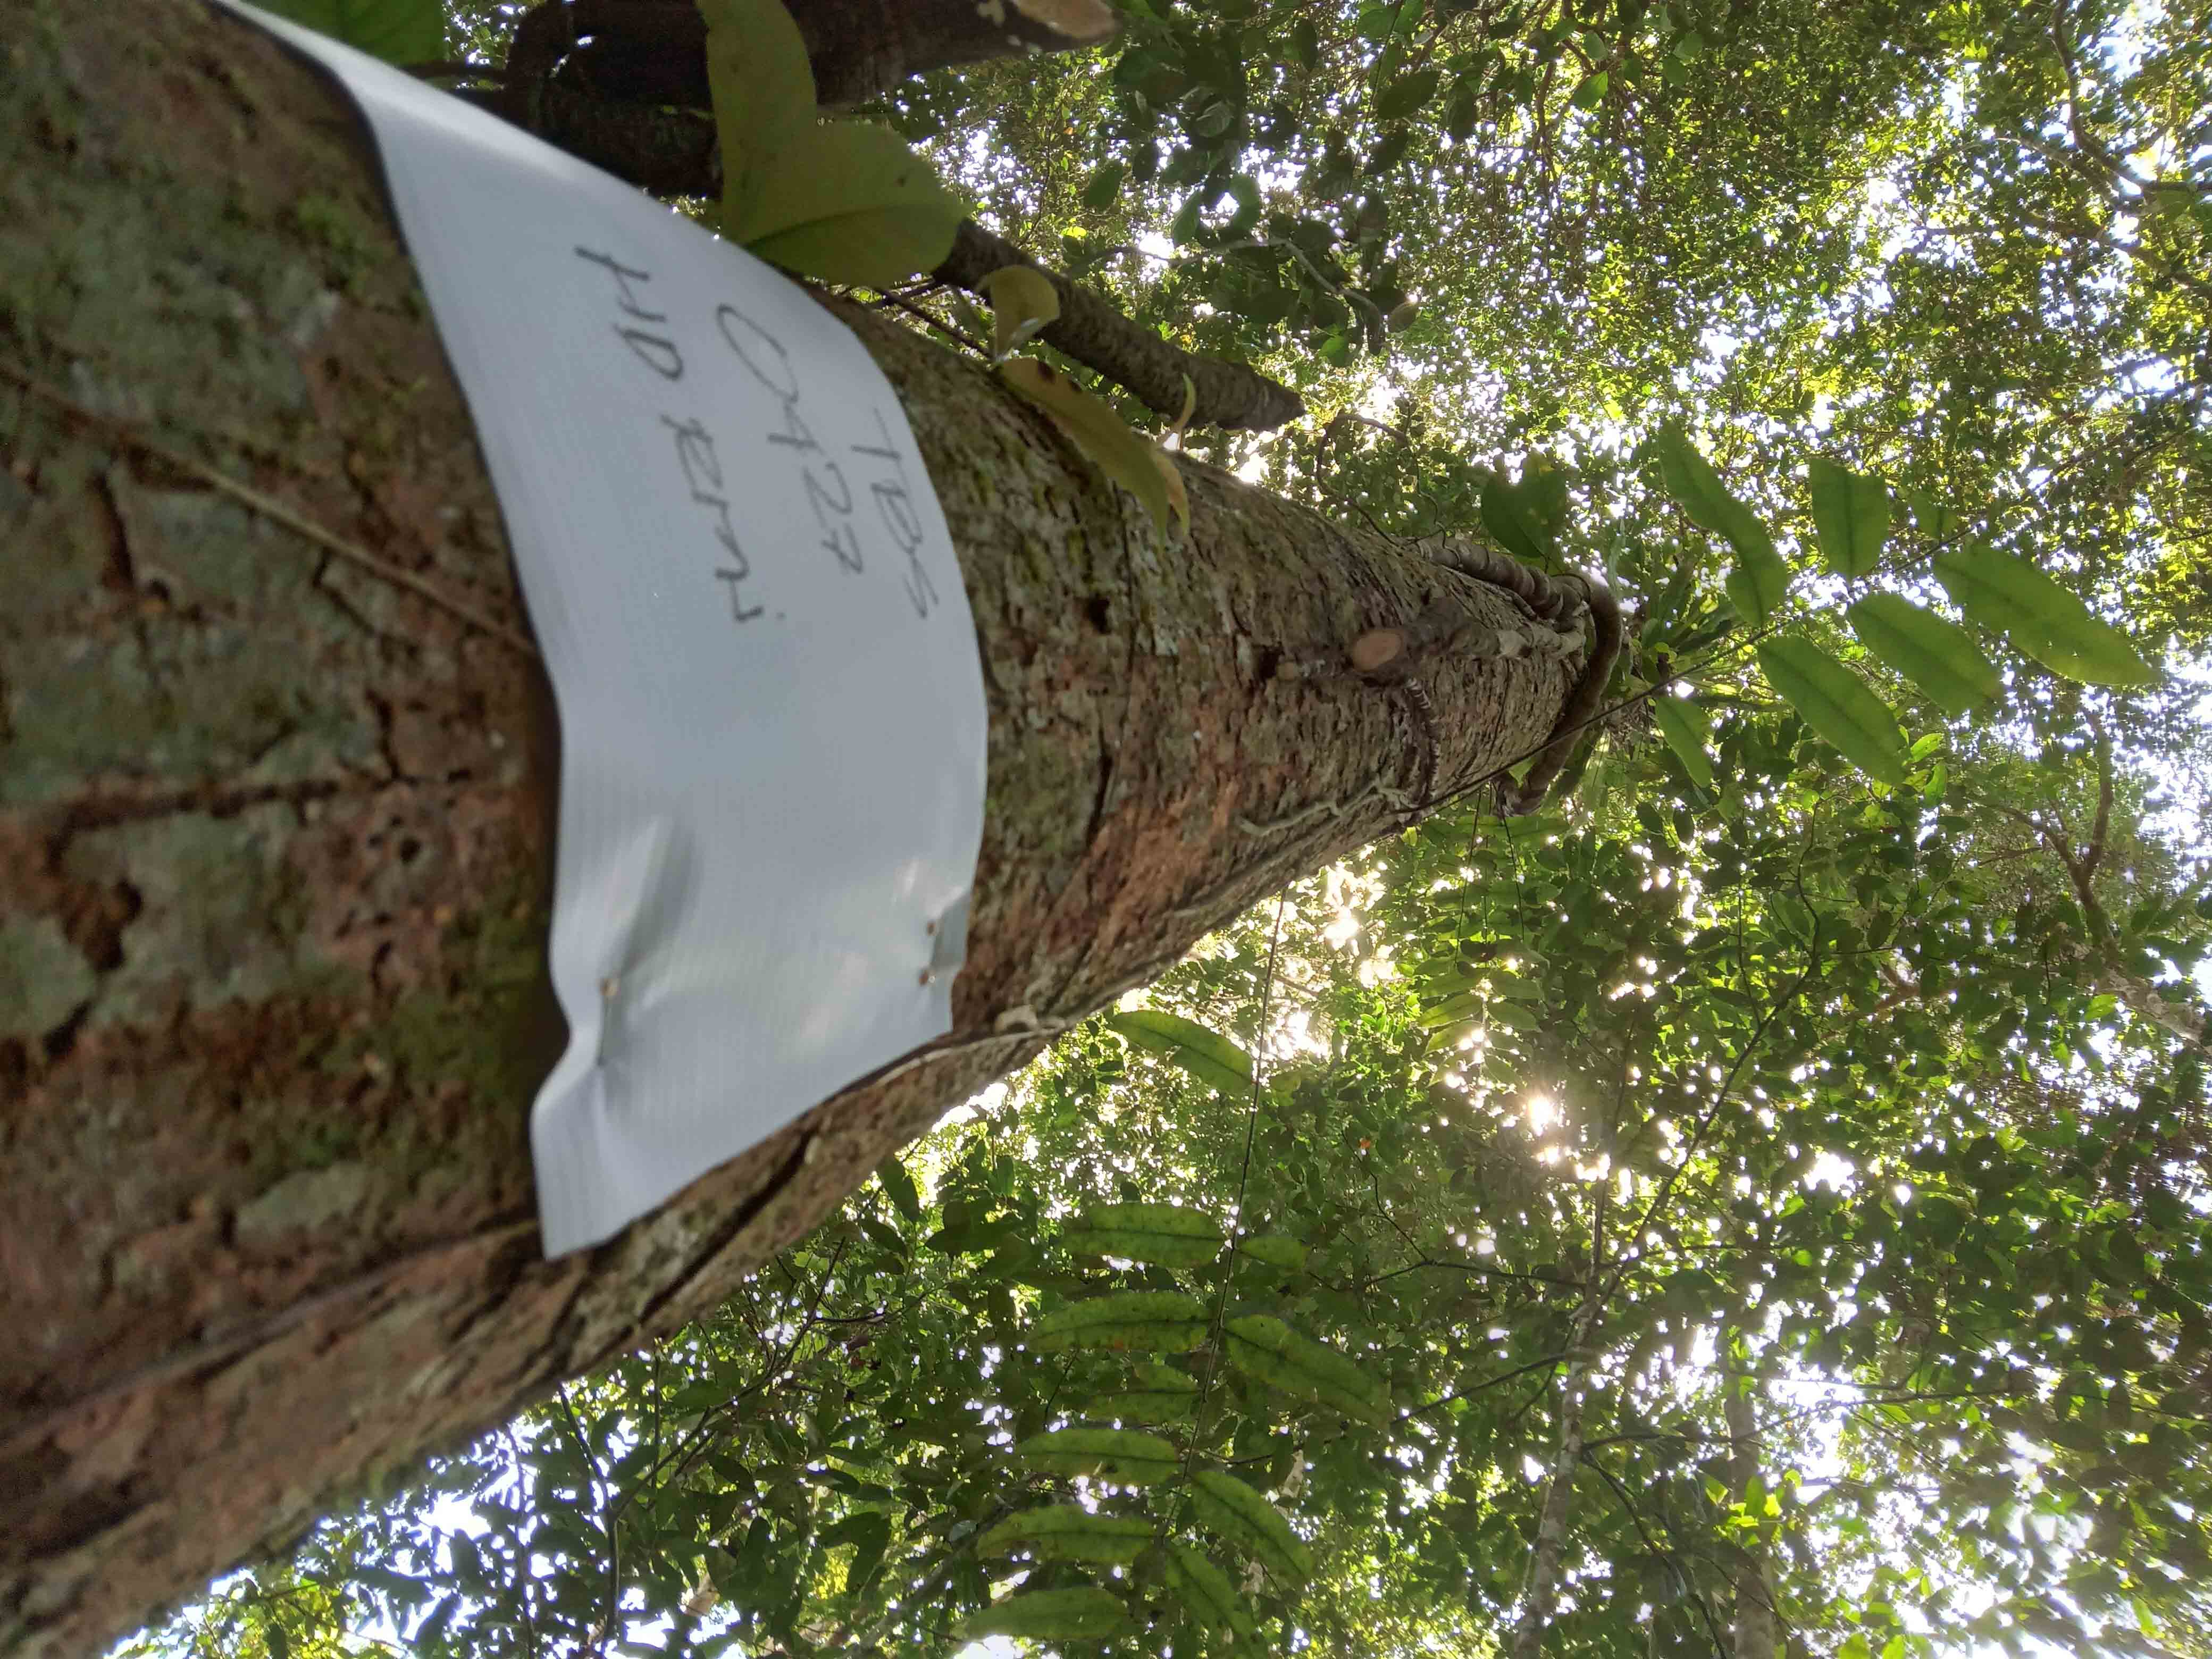 TBS
0427
HD RMNi